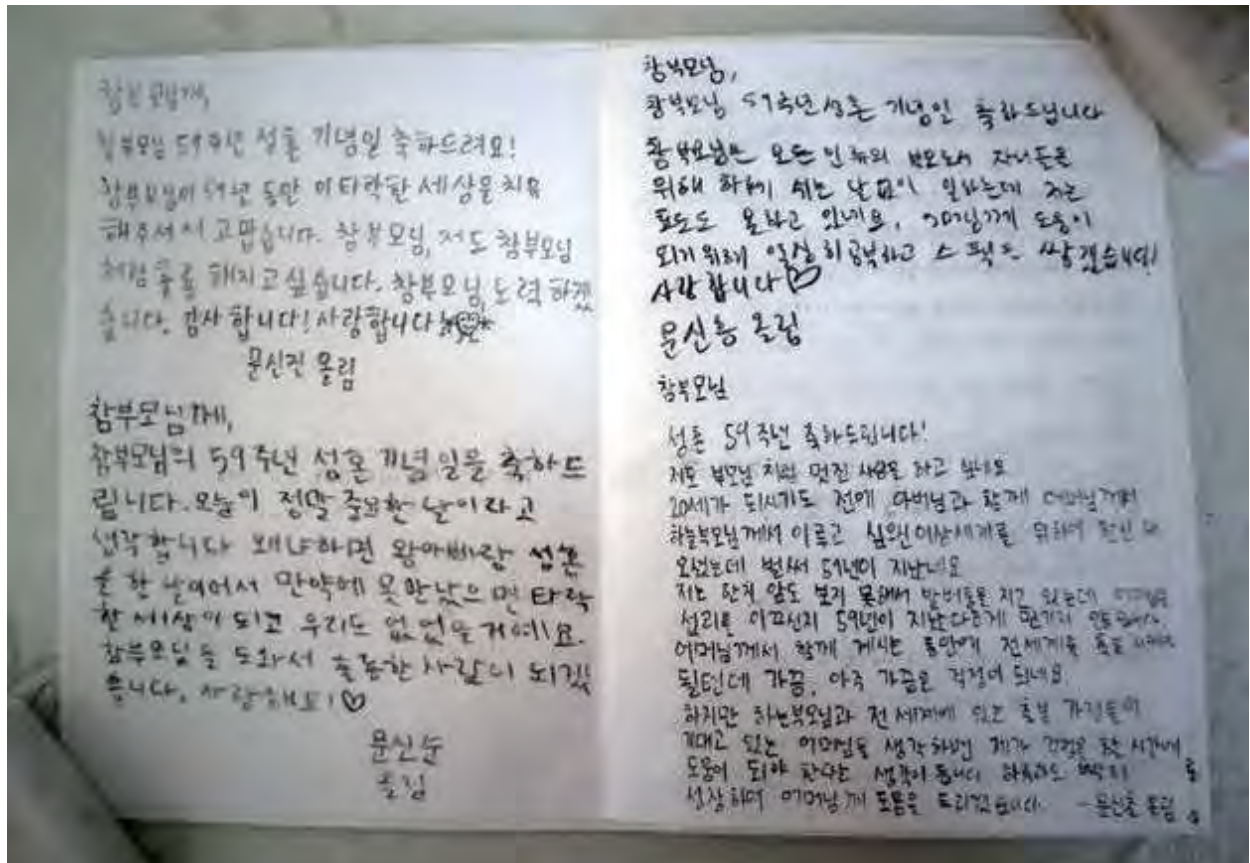 참부모님께,
참부모님 59주년 성혼 기념일 축하드려요!
참부모님이 59년 동안 이 타락한 세상을 치유
해주셔서 고맙습니다. 참부모님, 저도 참부모님
처럼 훌륭해지고 싶습니다. 참부모님, 노력하겠
습니다. 감사합니다! 사랑합니다!
문신진 올림
참부모님께,
참부모님의 59주년 성혼 기념일을 축하드
립니다. 오늘이 정말 중요한 날이라고
생각합니다 왜냐하면 왕아빠랑 성혼
을 한 날이어서 만약에 못 만났으면 타락
한 세상이 되고 우리도 없었을 거예요.
참부모님을 도와서 훌륭한 사람이 되겠
습니다. 사랑해요!♡
문신순
올림
참부모님,
참부모님 59주년 성혼 기념일 축하드립니다
참부모님은 모든 인류의 부모로서 자녀들을
위해 하루 쉬는 날 없이 일하는데 저는
못하고 있네요, 어머님께 도움이
되기 위해 열심히 공부하고 스펙도 쌓겠습니다!
사랑합니다♡
문신흥 올림
참부모님
성혼 59주년 축하드립니다!
저도 부모님처럼 멋진 사랑을 하고 싶네요
20세가 되시기도 전에 아버님과 함께
하늘부모님께서 이루고 싶었던 이상세계를 위하여
오셨는데 벌써 59년이 지났네요
저는 한치 앞도 보지 못해서 발버둥을 치고 있는데
섭리를 이끄신지 59년이 지난
어머님께서 함께 계시는 동안에 전세계를
될텐데 가끔, 아주 가끔은 걱정이 되네요
하지만 하늘부모님과 전 세계에 있는 축복 가정들이
기대고 있는 어머님을 생각하면 제가 걱정을 할 시간에
도움이 되야 한다는 생각이 듭니다 하루라도 빨리
성장하여 어머님께 도움을 드리겠습니다. - 올림